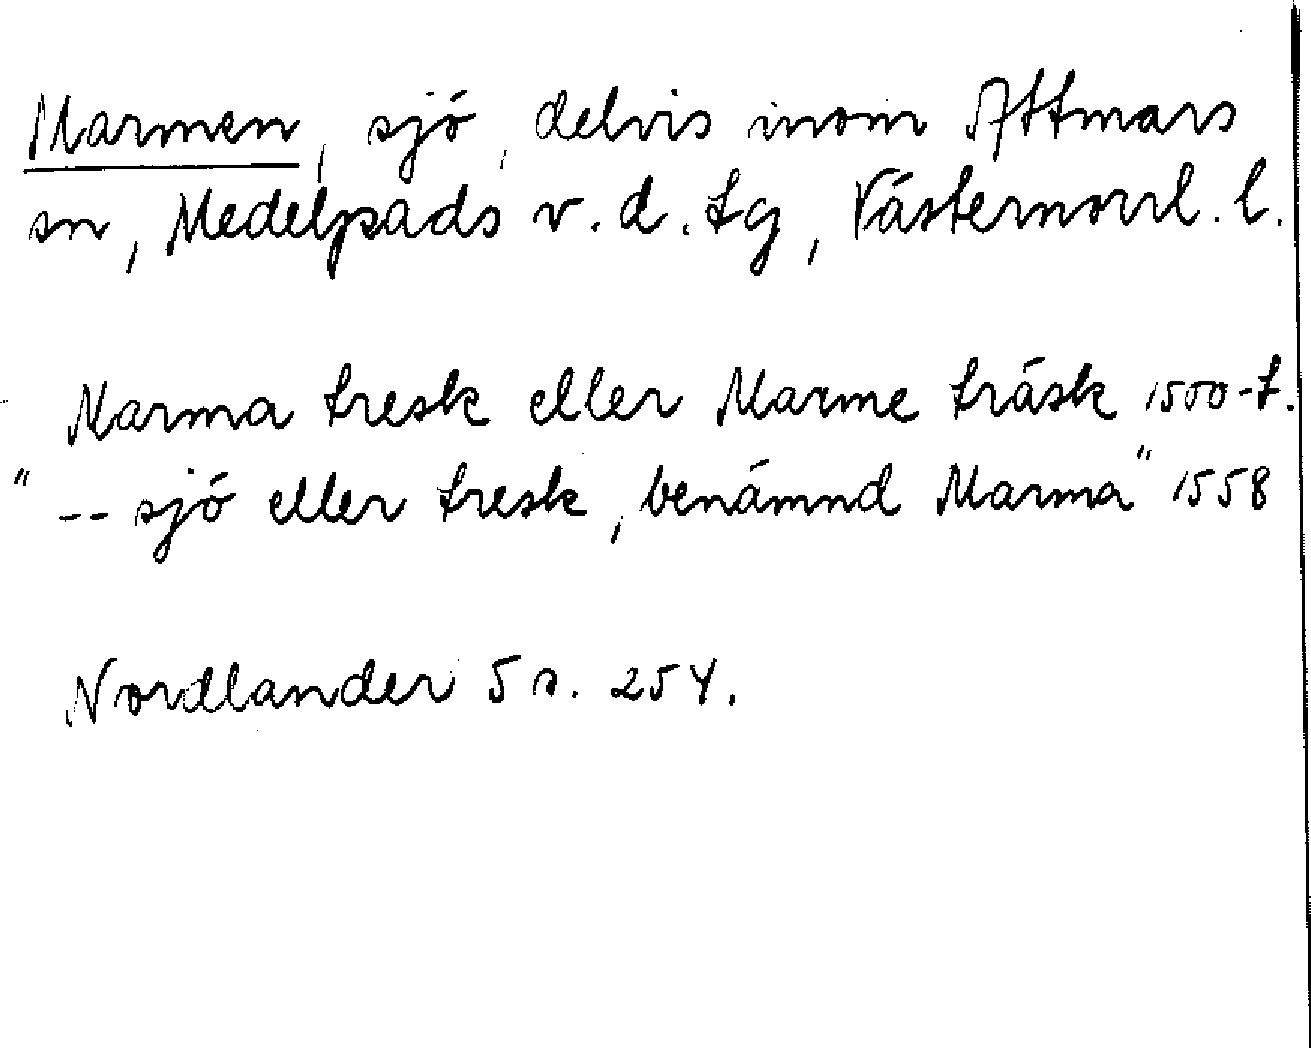 Marmen, sjö, delvis inom Attmars
sn, Medelpads v. d. tg, Västernorrl. l.
Marma tresk eller Marme träsk 1500-t.
" -- sjö eller tresk, benämnd Marma" 1558
Nordlander 5 s. 254.